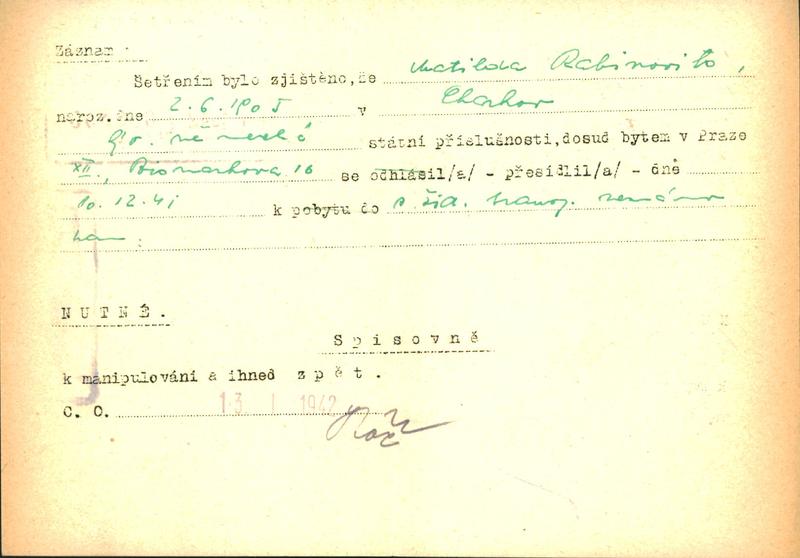 Záznam :
Šetřením bylo zjištěno, že Matilda Rabinovits,
naroz. dne 2.6.1905 v Charkov
státní příslušnosti, dosud bytem v Praze
XII., Bismarkova 16 se odhlásil/a/ - přesídlil/a/ - dně
10.12.41 k pobytu do s žid. transp. neznámo
kam.
NUTNÉ.
Spisovně
k manipulování a ihned zpět.
C. O. 13 I 1942